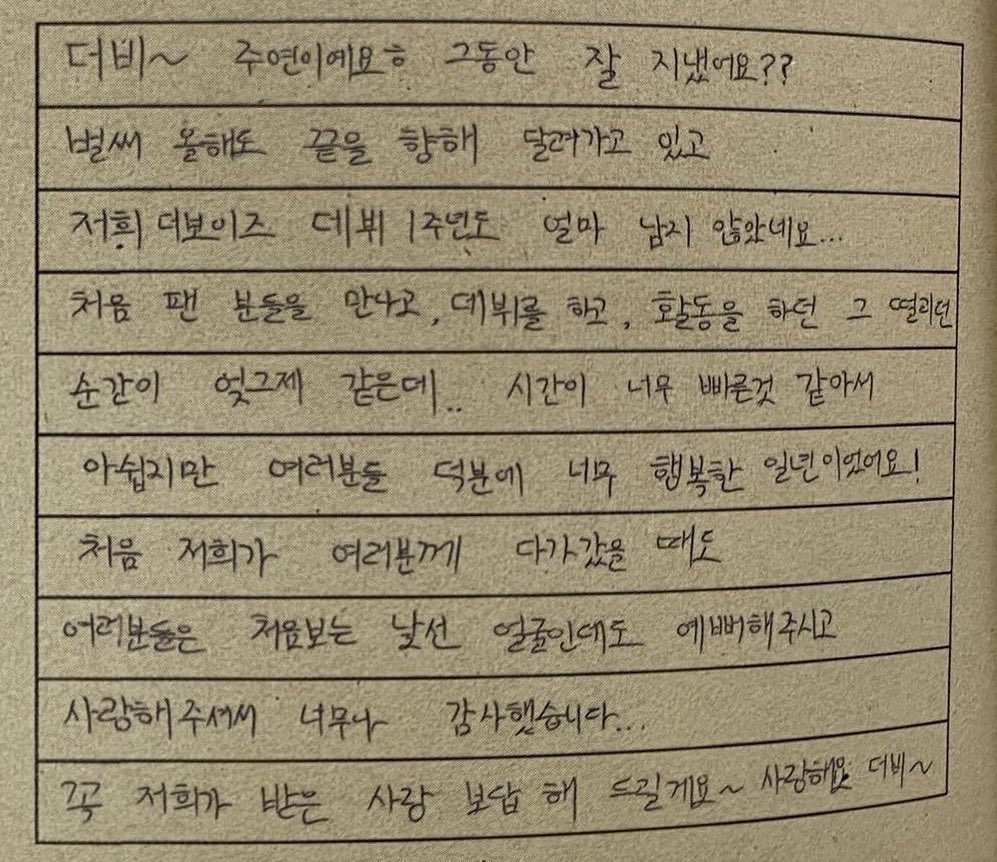 더비~ 주연이에요ㅎ 그동안 잘 지냈어요??
벌써 올해도 끝을 향해 달려가고 있고
저희 더보이즈 데뷔 1주년도 얼마 남지 않았네요...
처음 팬 분들을 만나고, 데뷔를 하고, 활동을 하던 그 떨리던
순간이 엊그제 같은데.. 시간이 너무 빠른것 같아서
아쉽지만 여러분들 덕분에 너무 행복한 일년이었어요!
처음 저희가 여러분께 다가갔을 때도
여러분들은 처음보는 낯선 얼굴인데도 예뻐해주시고
사랑해주셔서 너무나 감사했습니다...
꼭 저희가 받은 사랑 보답 해 드릴게요~ 사랑해요 더비~